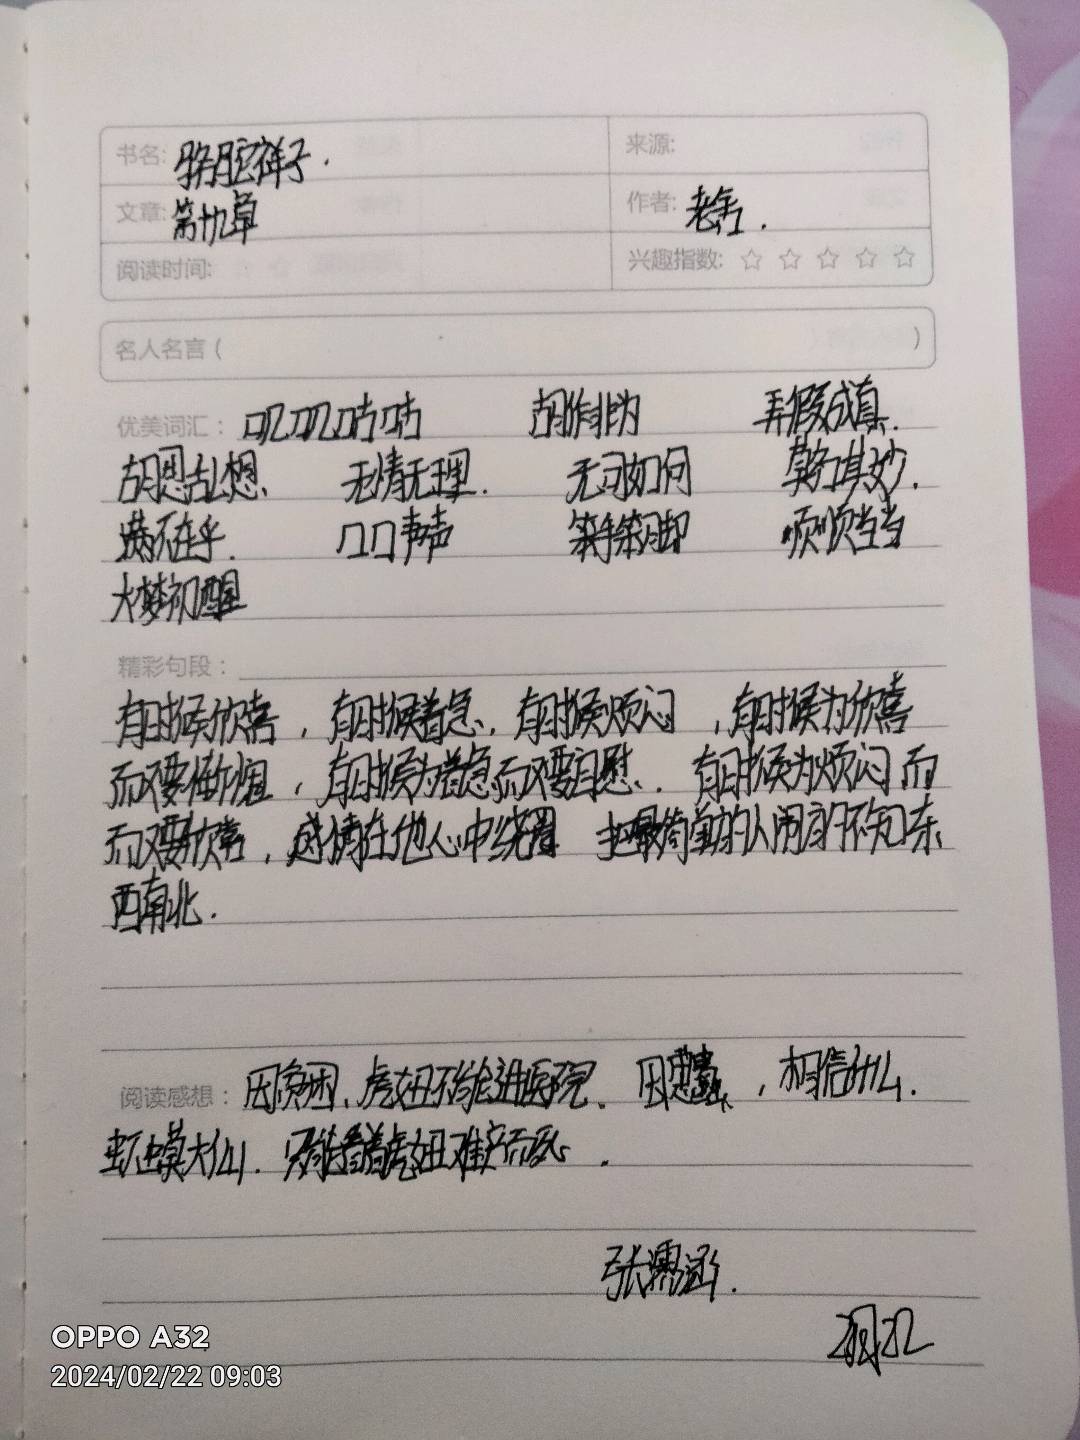 书名: 骆驼祥子. 来源:
文章: 第十九章 作者: 老舍.
阅读时间: 兴趣指数: ☆ ☆ ☆ ☆ ☆
名人名言 ( )
优美词汇: 叽叽咕咕 胡作非为 弄假成真.
胡思乱想、 无情无理. 无可如何 莫名其妙.
满不在乎. 口口声声 笨手笨脚 顺顺当当
大梦初醒
精彩句段:
有时候欣喜,有时候着急,有时候烦闷,有时候为欣喜
而又要惭愧,有时候为着急而又要自慰、有时候为烦闷而
而又要欣喜,感情在他心中绕着 把最简单的人闹的不知东
西南北.
阅读感想: 因贫困、虎妞不能进医院、因愚蠢,相信什么.
虾蟆大仙. 只能看着虎妞难产而死.
张濡涵.
OPPO A32
2024/02/22 09:03